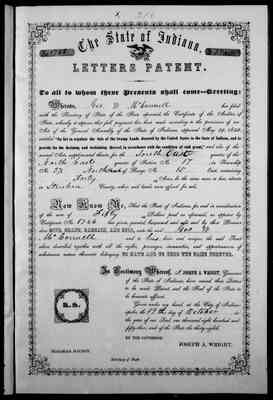 The State of Indiana,
LETTERS PATENT.
To all to whom these Presents shall come—Greeting:
Whereas, Geo. W. McConnell has filed
with the Secretary of State of the State aforesaid the Certificate of the Auditor of
State, whereby it appears that full payment has been made according to the provisions of an
Act of the General Assembly of the State of Indiana, approved May 29, 1852,
entitled "An Act to regulate the Sale of the Swamp Lands donated by the United States to the State of Indiana, and to
provide for the draining and reclaiming thereof, in accordance with the condition of said grant," and also of the
several Acts supplemental thereto, for the South East quarter of the
North East quarter of Section No. 17 in Township
No. 37 North of Range No. containing
Forty Acres, be the same more or less, situate
in Steuben County, when said lands were offered for sale.
Now Know Ye, That the State of Indiana, for and in consideration
of the sum of Fifty Dollars paid as aforesaid, as appears by
Certificate No. 1766 has given, granted, bargained and sold, and by these Presents
does GIVE, GRANT, BARGAIN, AND SELL, unto the said Geo. W.
McConnell and to heirs and assigns the said Tract
above described together with all the rights, privileges, immunities, and appurtenances of
whatsoever nature thereunto belonging TO HAVE AND TO HOLD THE SAME FOREVER.
In Testimony Whereof, I, JOSEPH A. WRIGHT, Governor
of the State of Indiana, have caused these Letters
to be made Patent, and the Seal of the State to
be hereunto affixed.
Given under my hand, at the City of Indiana-
polis, the 18th day of October in
the year of our Lord one thousand eight hundred and
fifty-, and of the State the thirty-eighth.
L.S.
BY THE GOVERNOR
JOSEPH A. WRIGHT.
Secretary of State